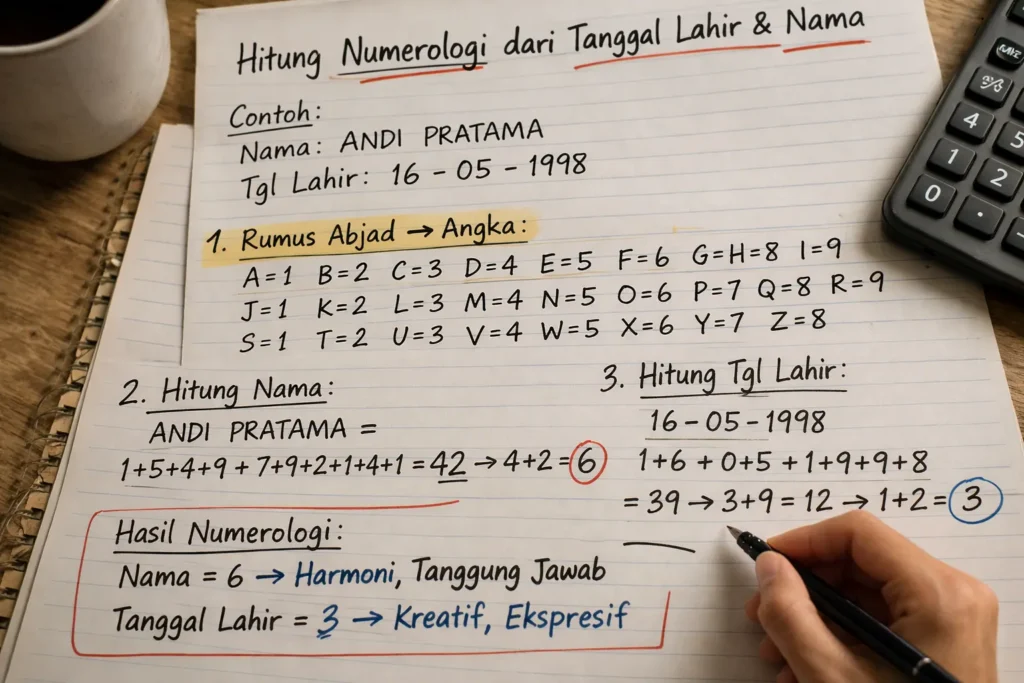 Hitung Numerologi dari Tanggal Lahir & Nama
Contoh:
Nama: ANDI PRATAMA
Tgl Lahir: 16 - 05 - 1998
1. Rumus Abjad → Angka:
A=1 B=2 C=3 D=4 E=5 F=6 G=H=8 I=9
J=1 K=2 L=3 M=4 N=5 O=6 P=7 Q=8 R=9
S=1 T=2 U=3 V=4 W=5 X=6 Y=7 Z=8
2. Hitung Nama:
ANDI PRATAMA =
1+5+4+9 + 7+9+2+1+4+1 = 42 → 4+2= 6
3. Hitung Tgl Lahir:
16 - 05 - 1998
1+6 + 0+5 + 1+9+9+8
= 39 → 3+9 = 12 → 1+2 = 3
Hasil Numerologi:
Nama = 6 → Harmoni, Tanggung Jawab
Tanggal Lahir = 3 → Kreatif, Ekspresif
4
5
1
2
0
.